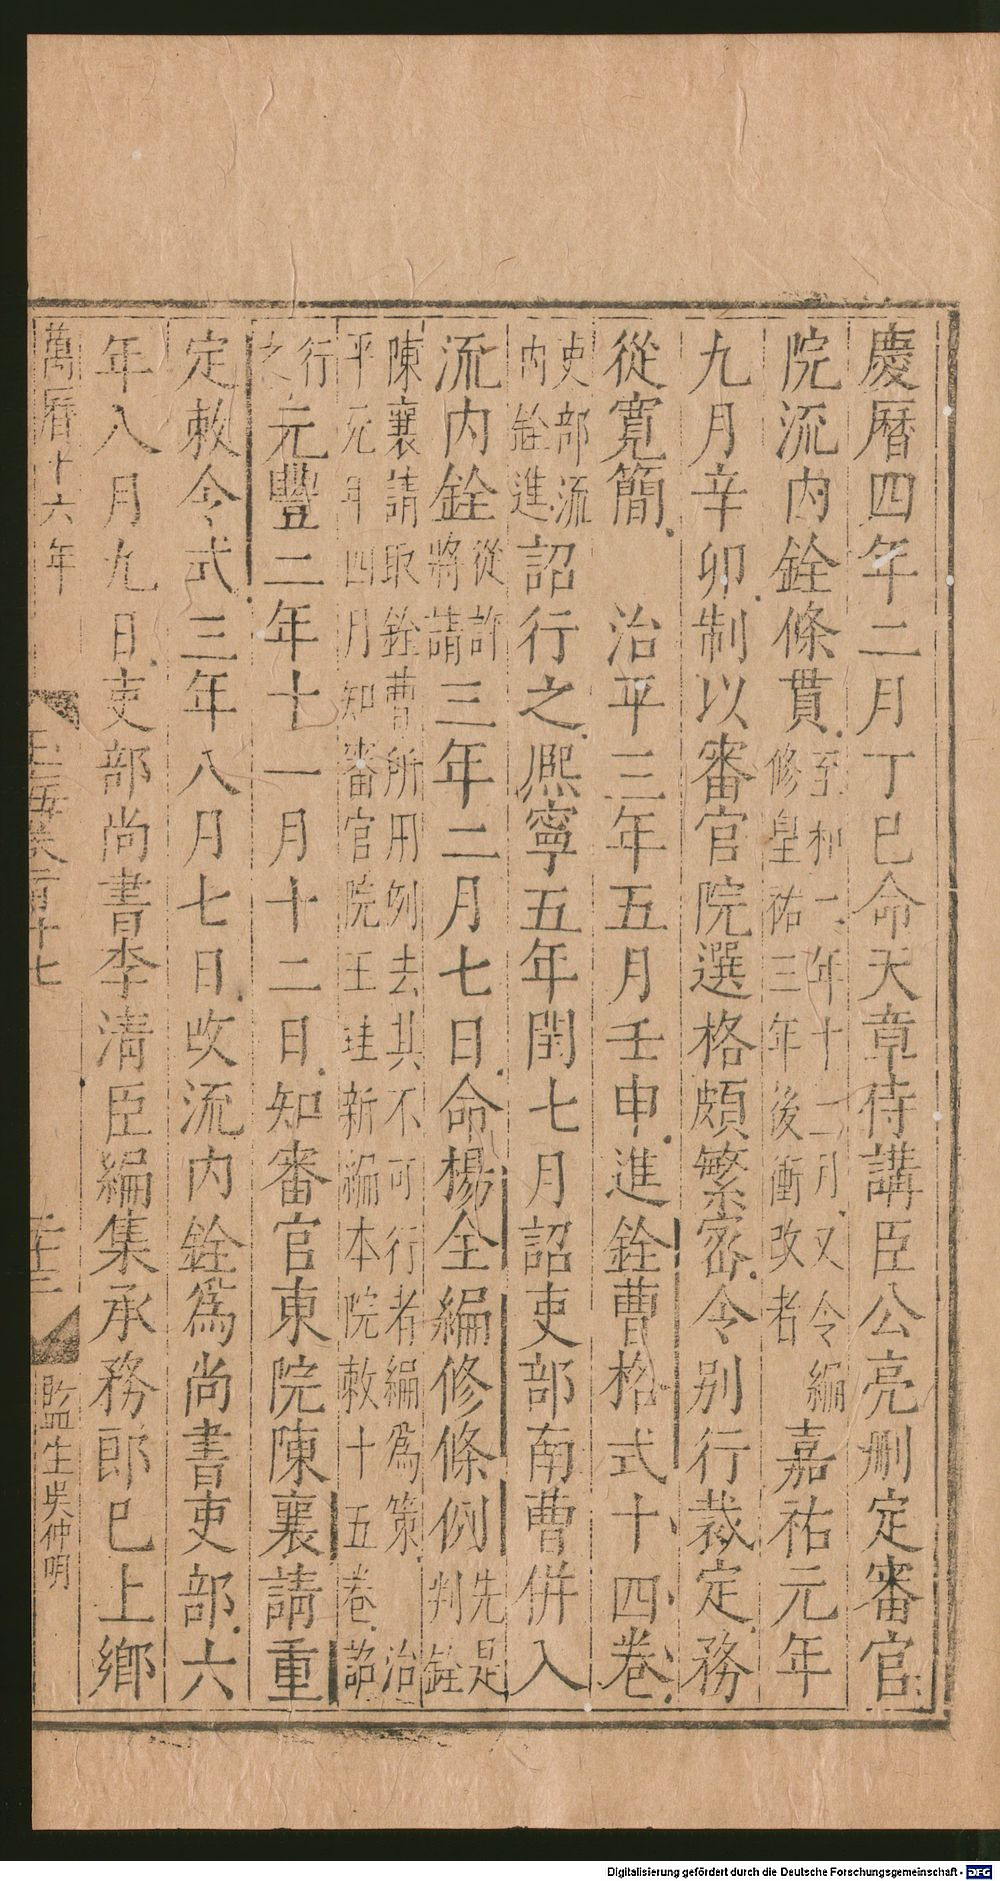 慶曆四年二月丁巳命天章侍講臣公亮刪定審官
院流內銓條貫至和二年十二月又令編修皇祐三年後衝改者嘉祐元年
九月辛卯制以審官院選格頗繁密令別行裁定務
從寬簡　治平三年五月壬申進銓曹格式十四卷
吏部流內銓進詔行之熈寧五年閏七月詔吏部南曹併入
流內銓從許將請三年二月七日命楊全編修條例先是判銓
陳襄請取銓曹所用例去其不可行者編爲策　治平元年四月知審官院王珪新編本院敕十五卷詔
行之元豐二年十一月十二日知審官東院陳襄請重
定敕令式三年八月七日改流內銓爲尚書吏部六
年八月九日吏部尚書李清臣編集承務郎已上鄉
萬曆十六年
玉海卷一百十七
監生吳仲明
Digitalisierung gefördert durch die Deutsche Forschungsgemeinschaft - DFG